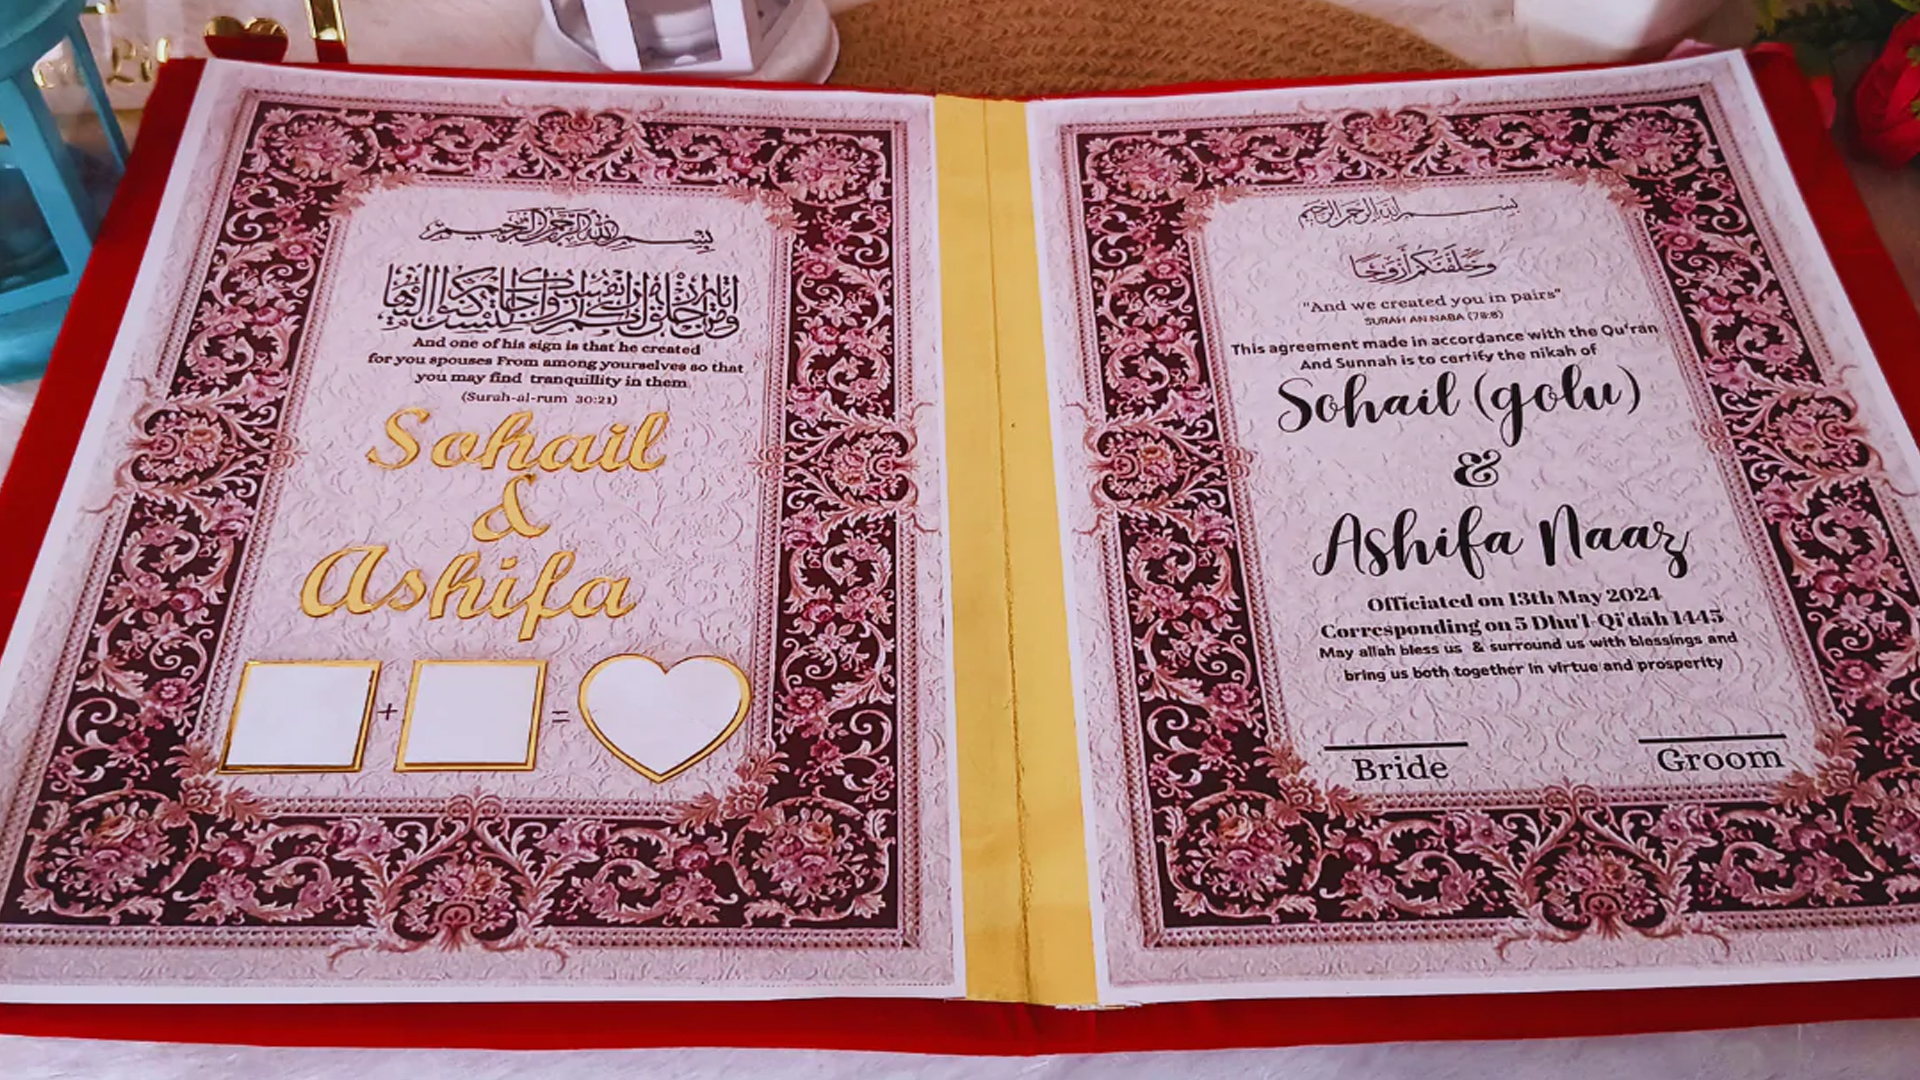 بسم الله الرحمن الرحيم
ومن آياته أن خلق لكم من أنفسكم أزواجا لتسكنوا إليها
And one of his sign is that he created
for you spouses From among yourselves so that
you may find tranquillity in them
(Surah-al-rum 30:21)
Sohail
&
Ashifa
+ =
بسم الله الرحمن الرحيم
وخلقنكم أزوجا
"And we created you in pairs"
SURAH AN NABA (78:8)
This agreement made in accordance with the Qu'ran
And Sunnah is to certify the nikah of
Sohail (golu)
&
Ashifa Naaz
Officiated on 13th May 2024
Corresponding on 5 Dhu'l-Qi'dah 1445
May allah bless us & surround us with blessings and
bring us both together in virtue and prosperity
Bride Groom